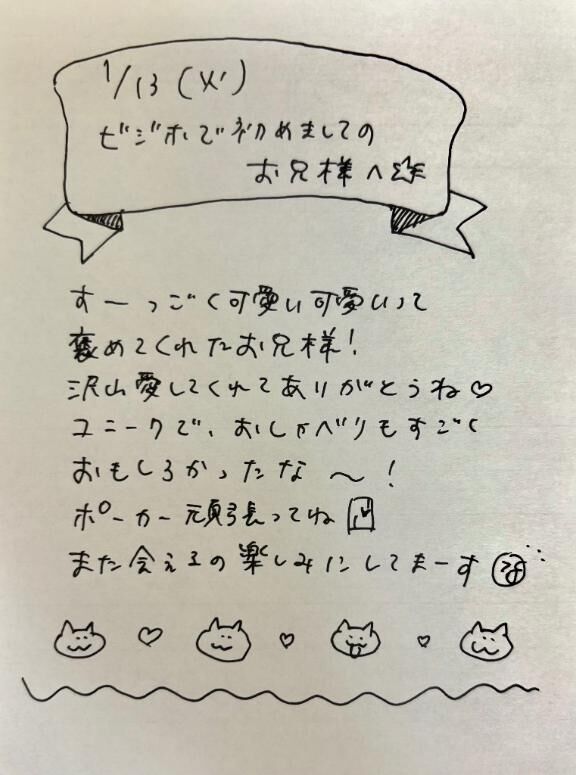 1/13 (火)
ビジホで初めましての
お兄様へ
すーっごく可愛い可愛いって
褒めてくれたお兄様!
沢山愛してくれてありがとうね♡
ユニークで、おしゃべりもすごく
おもしろかったな〜!
ポーカー頑張ってね
また会えるの楽しみにしてまーす